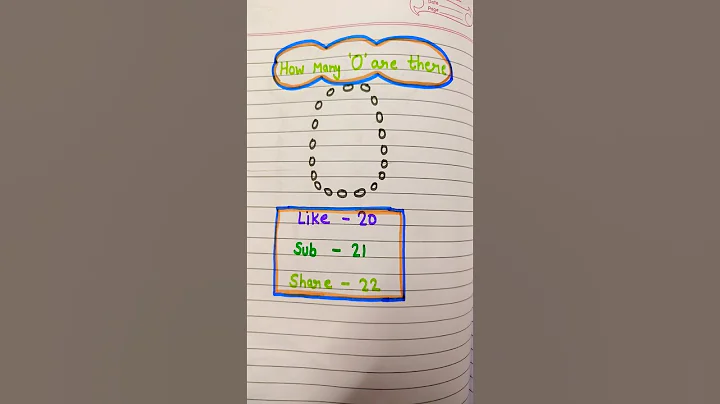 Date
Page
How many 'O' are there
Like - 20
Sub - 21
Share - 22